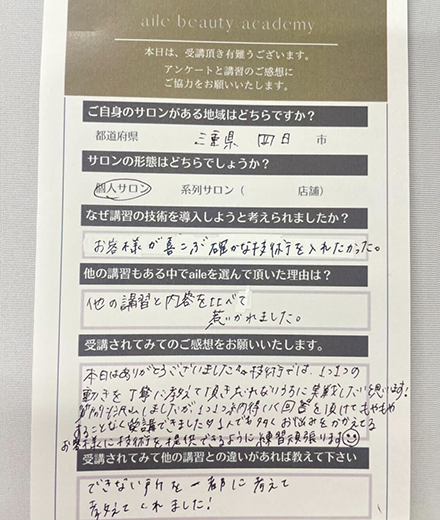 aile beauty academy
本日は、受講頂き有難うございます。
アンケートと講習のご感想に
ご協力をお願いいたします。
ご自身のサロンがある地域はどちらですか？
都道府県 三重県 四日 市
サロンの形態はどちらでしょうか？
個人サロン 系列サロン（ 店舗）
なぜ講習の技術を導入しようと考えられましたか？
お客様が喜こぶ確かな技術を入れたかった。
他の講習もある中でaileを選んで頂いた理由は？
他の講習と内容を比べて
惹かれました。
受講されてみてのご感想をお願いいたします。
本日はありがとうございました。技術では、1つ1つの
動きを丁寧に教えて頂き忘れないように実践したいと思います！
質問沢山しましたが1つ1つ納得いく回答を頂けてもやもや
することなく受講できました。1人でも多くお悩みをかかえてる
お客様に技術を提供できるように練習頑張ります
受講されてみて他の講習との違いがあれば教えて下さい
できない所を一緒に考えて
教えてくれました！